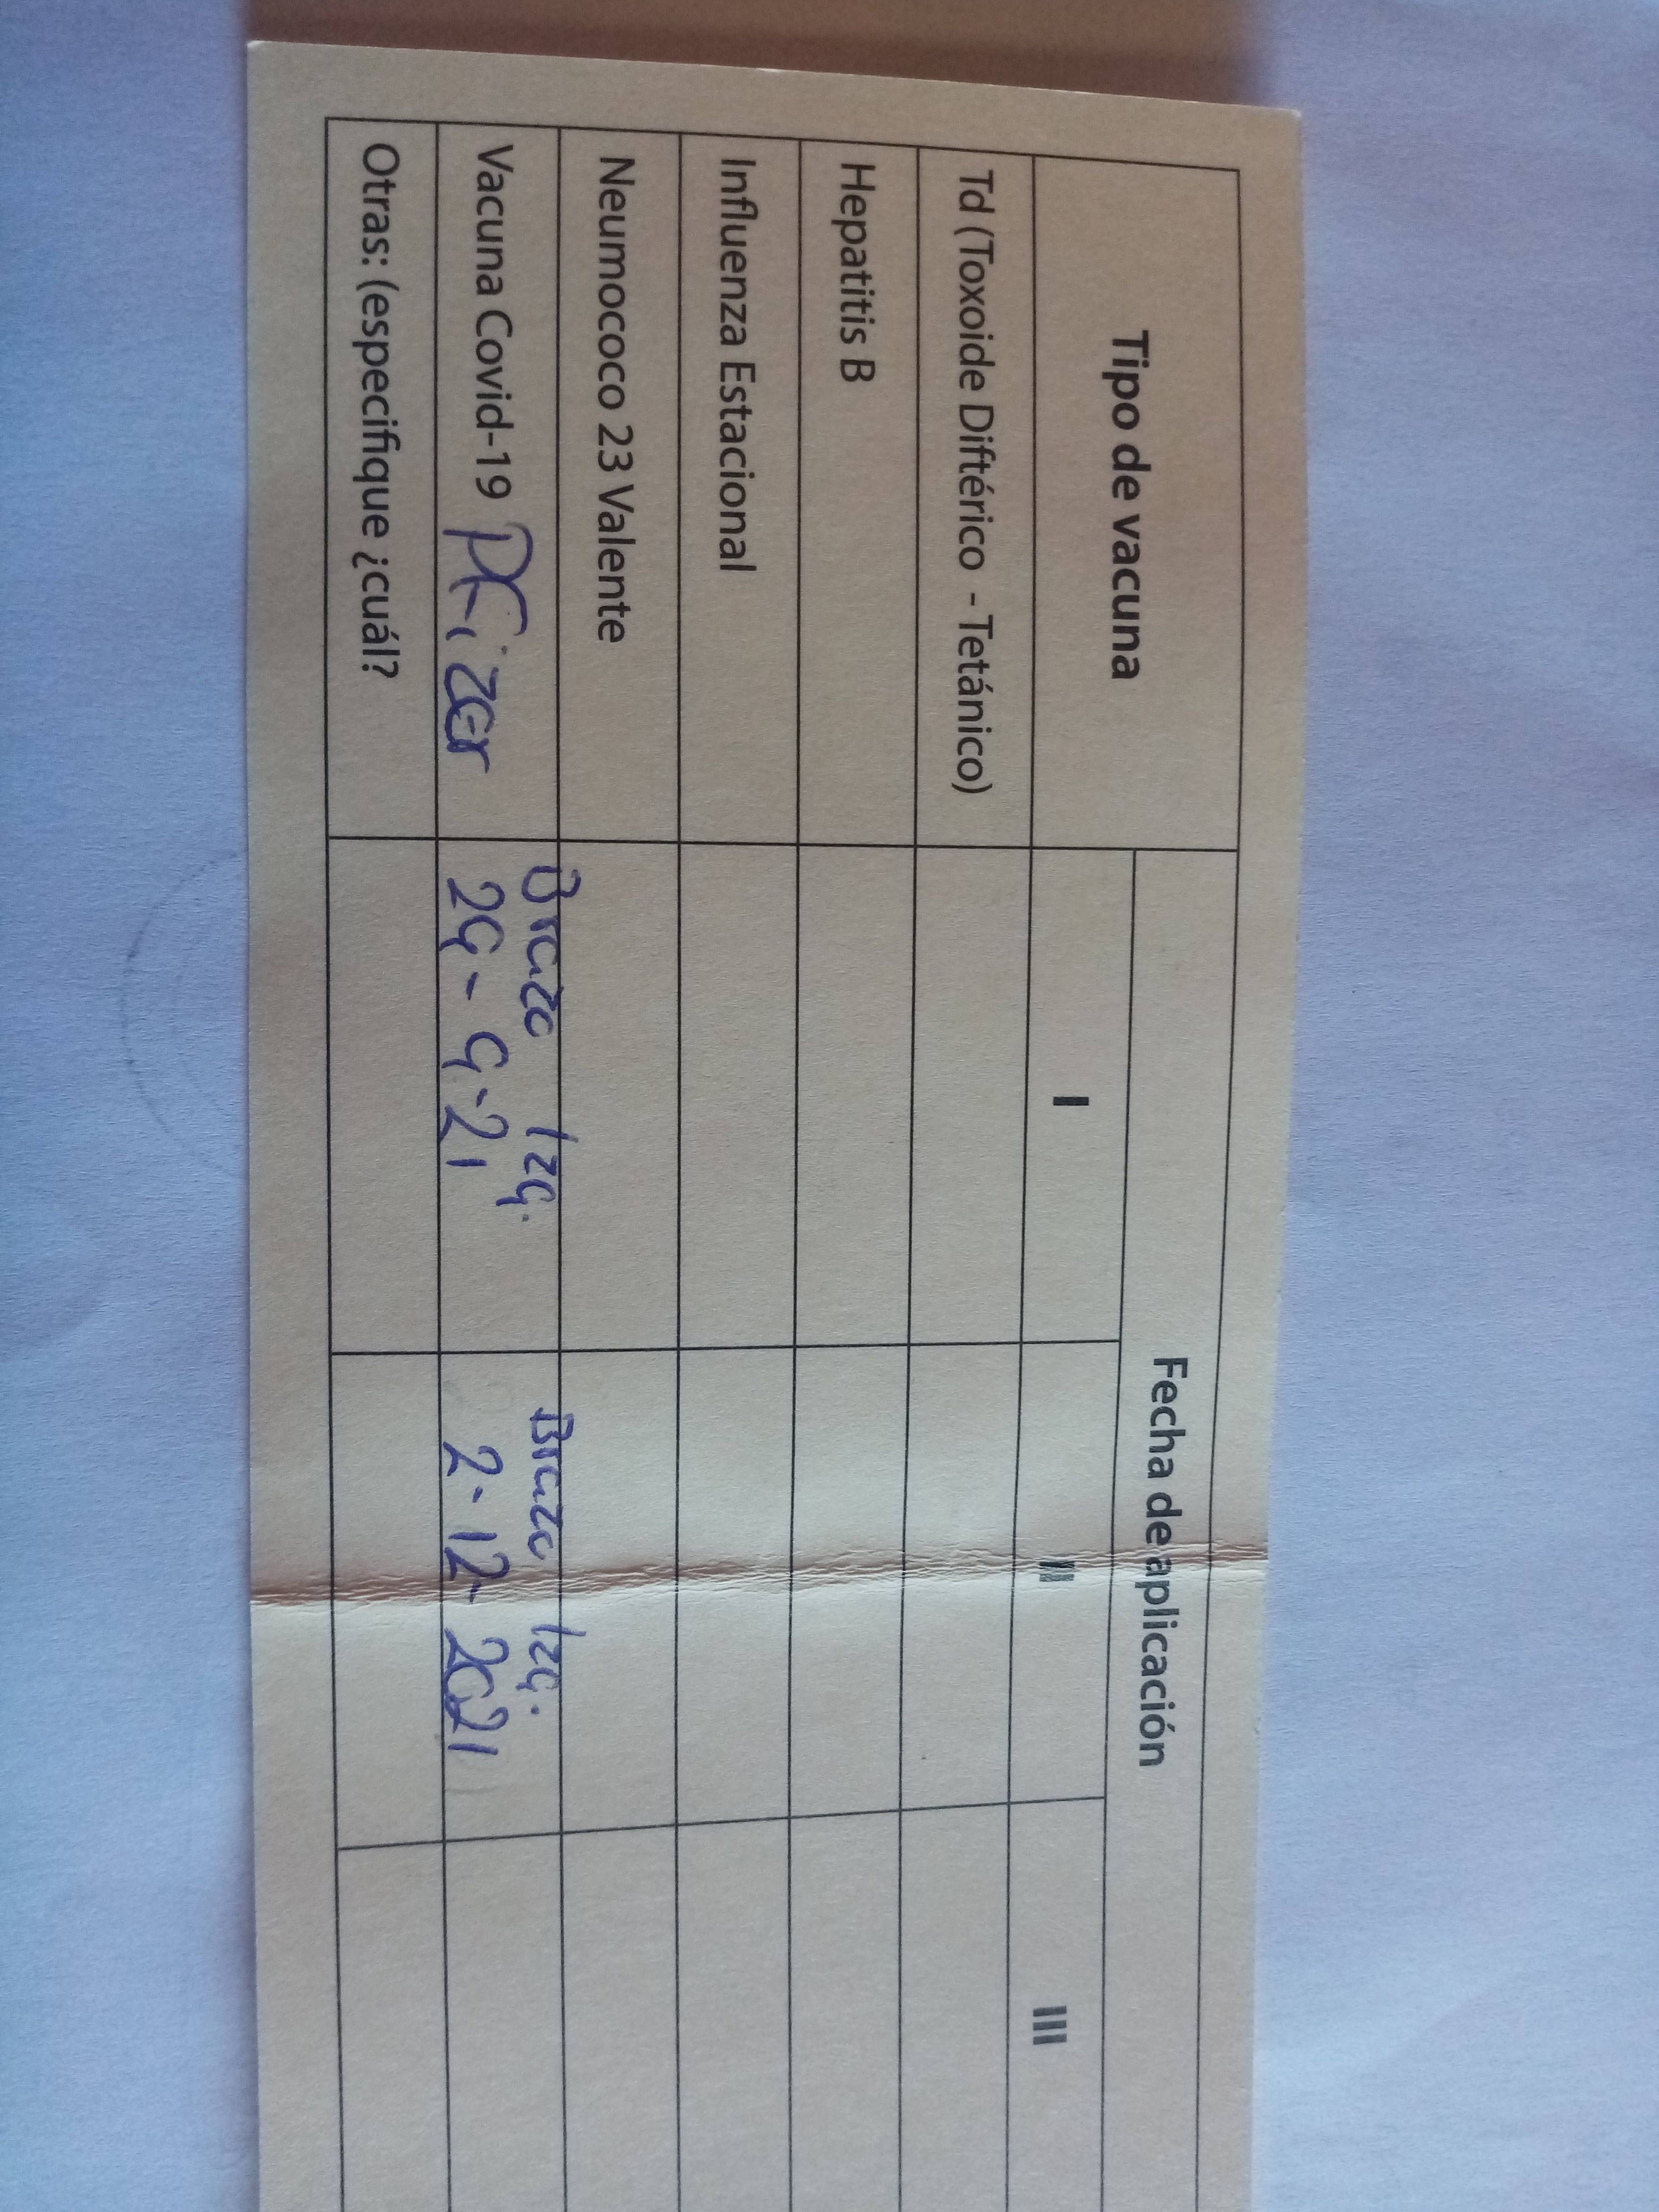 Tipo de vacuna
Fecha de aplicación
I II III
Td (Toxoide Diftérico - Tetánico)
Hepatitis B
Influenza Estacional
Neumococo 23 Valente
Vacuna Covid-19 Pfizer
Brazo Izq. Brazo Izq.
29-9-21 2-12-2021
Otras: (especifique ¿cuál?